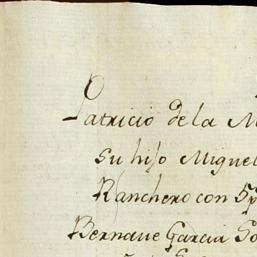 Patricio de la M
su hijo Miguel
Ranchero con 5p
Bernave Garcia So